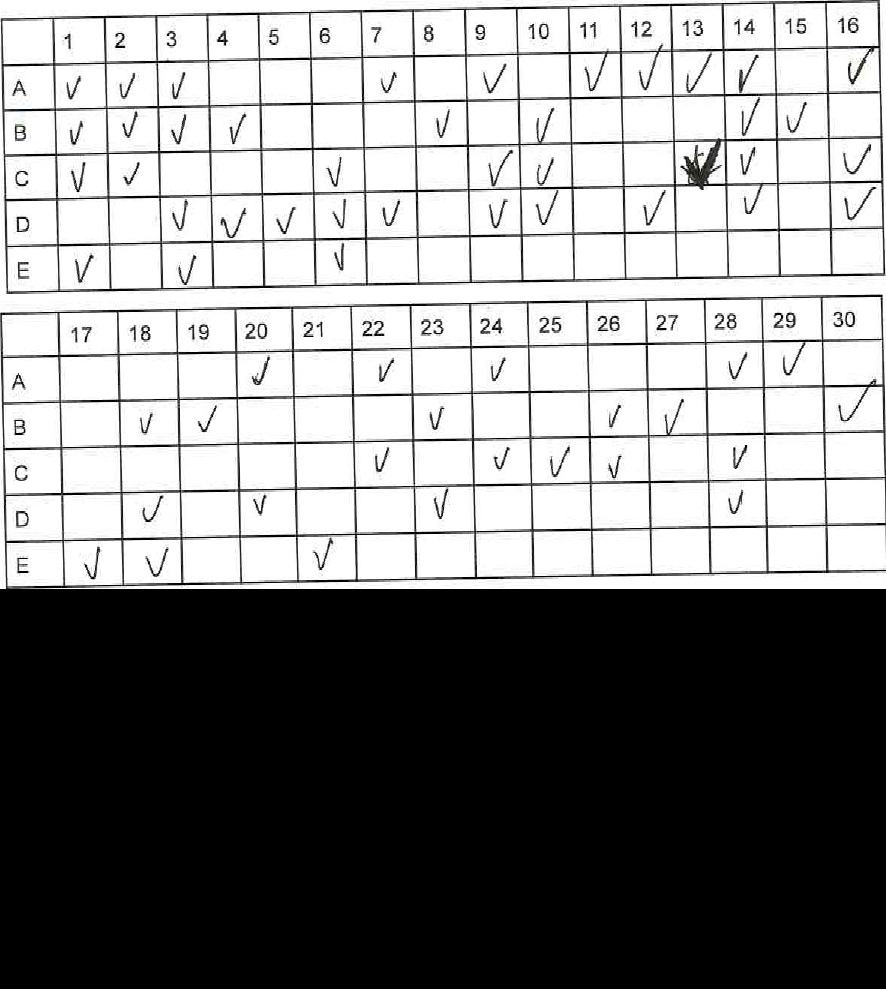 1 2 3 4 5 6 7 8 9 10 11 12 13 14 15 16
A ✓ ✓ ✓ ✓ ✓ ✓ ✓ ✓ ✓ ✓
B ✓ ✓ ✓ ✓ ✓ ✓ ✓ ✓
C ✓ ✓ ✓ ✓ ✓ ✓ ✓
D ✓ ✓ ✓ ✓ ✓ ✓ ✓ ✓ ✓ ✓
E ✓ ✓ ✓
17 18 19 20 21 22 23 24 25 26 27 28 29 30
A ✓ ✓ ✓ ✓ ✓
B ✓ ✓ ✓ ✓ ✓ ✓
C ✓ ✓ ✓ ✓ ✓
D ✓ ✓ ✓ ✓
E ✓ ✓ ✓